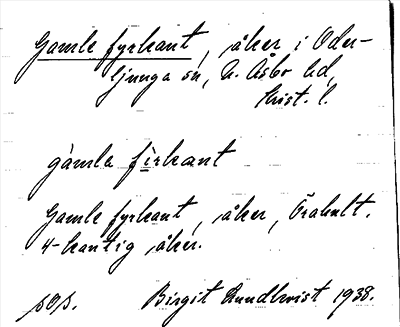 Gamle fyrkant, åker i Oder-
ljunga sn, N. Åsbo hd,
Krist. l.
gàmla fìrkant
Gamle fyrkant, åker, Örahult.
4-kantig åker.
sOs.  Birgit Rundkvist 1938.